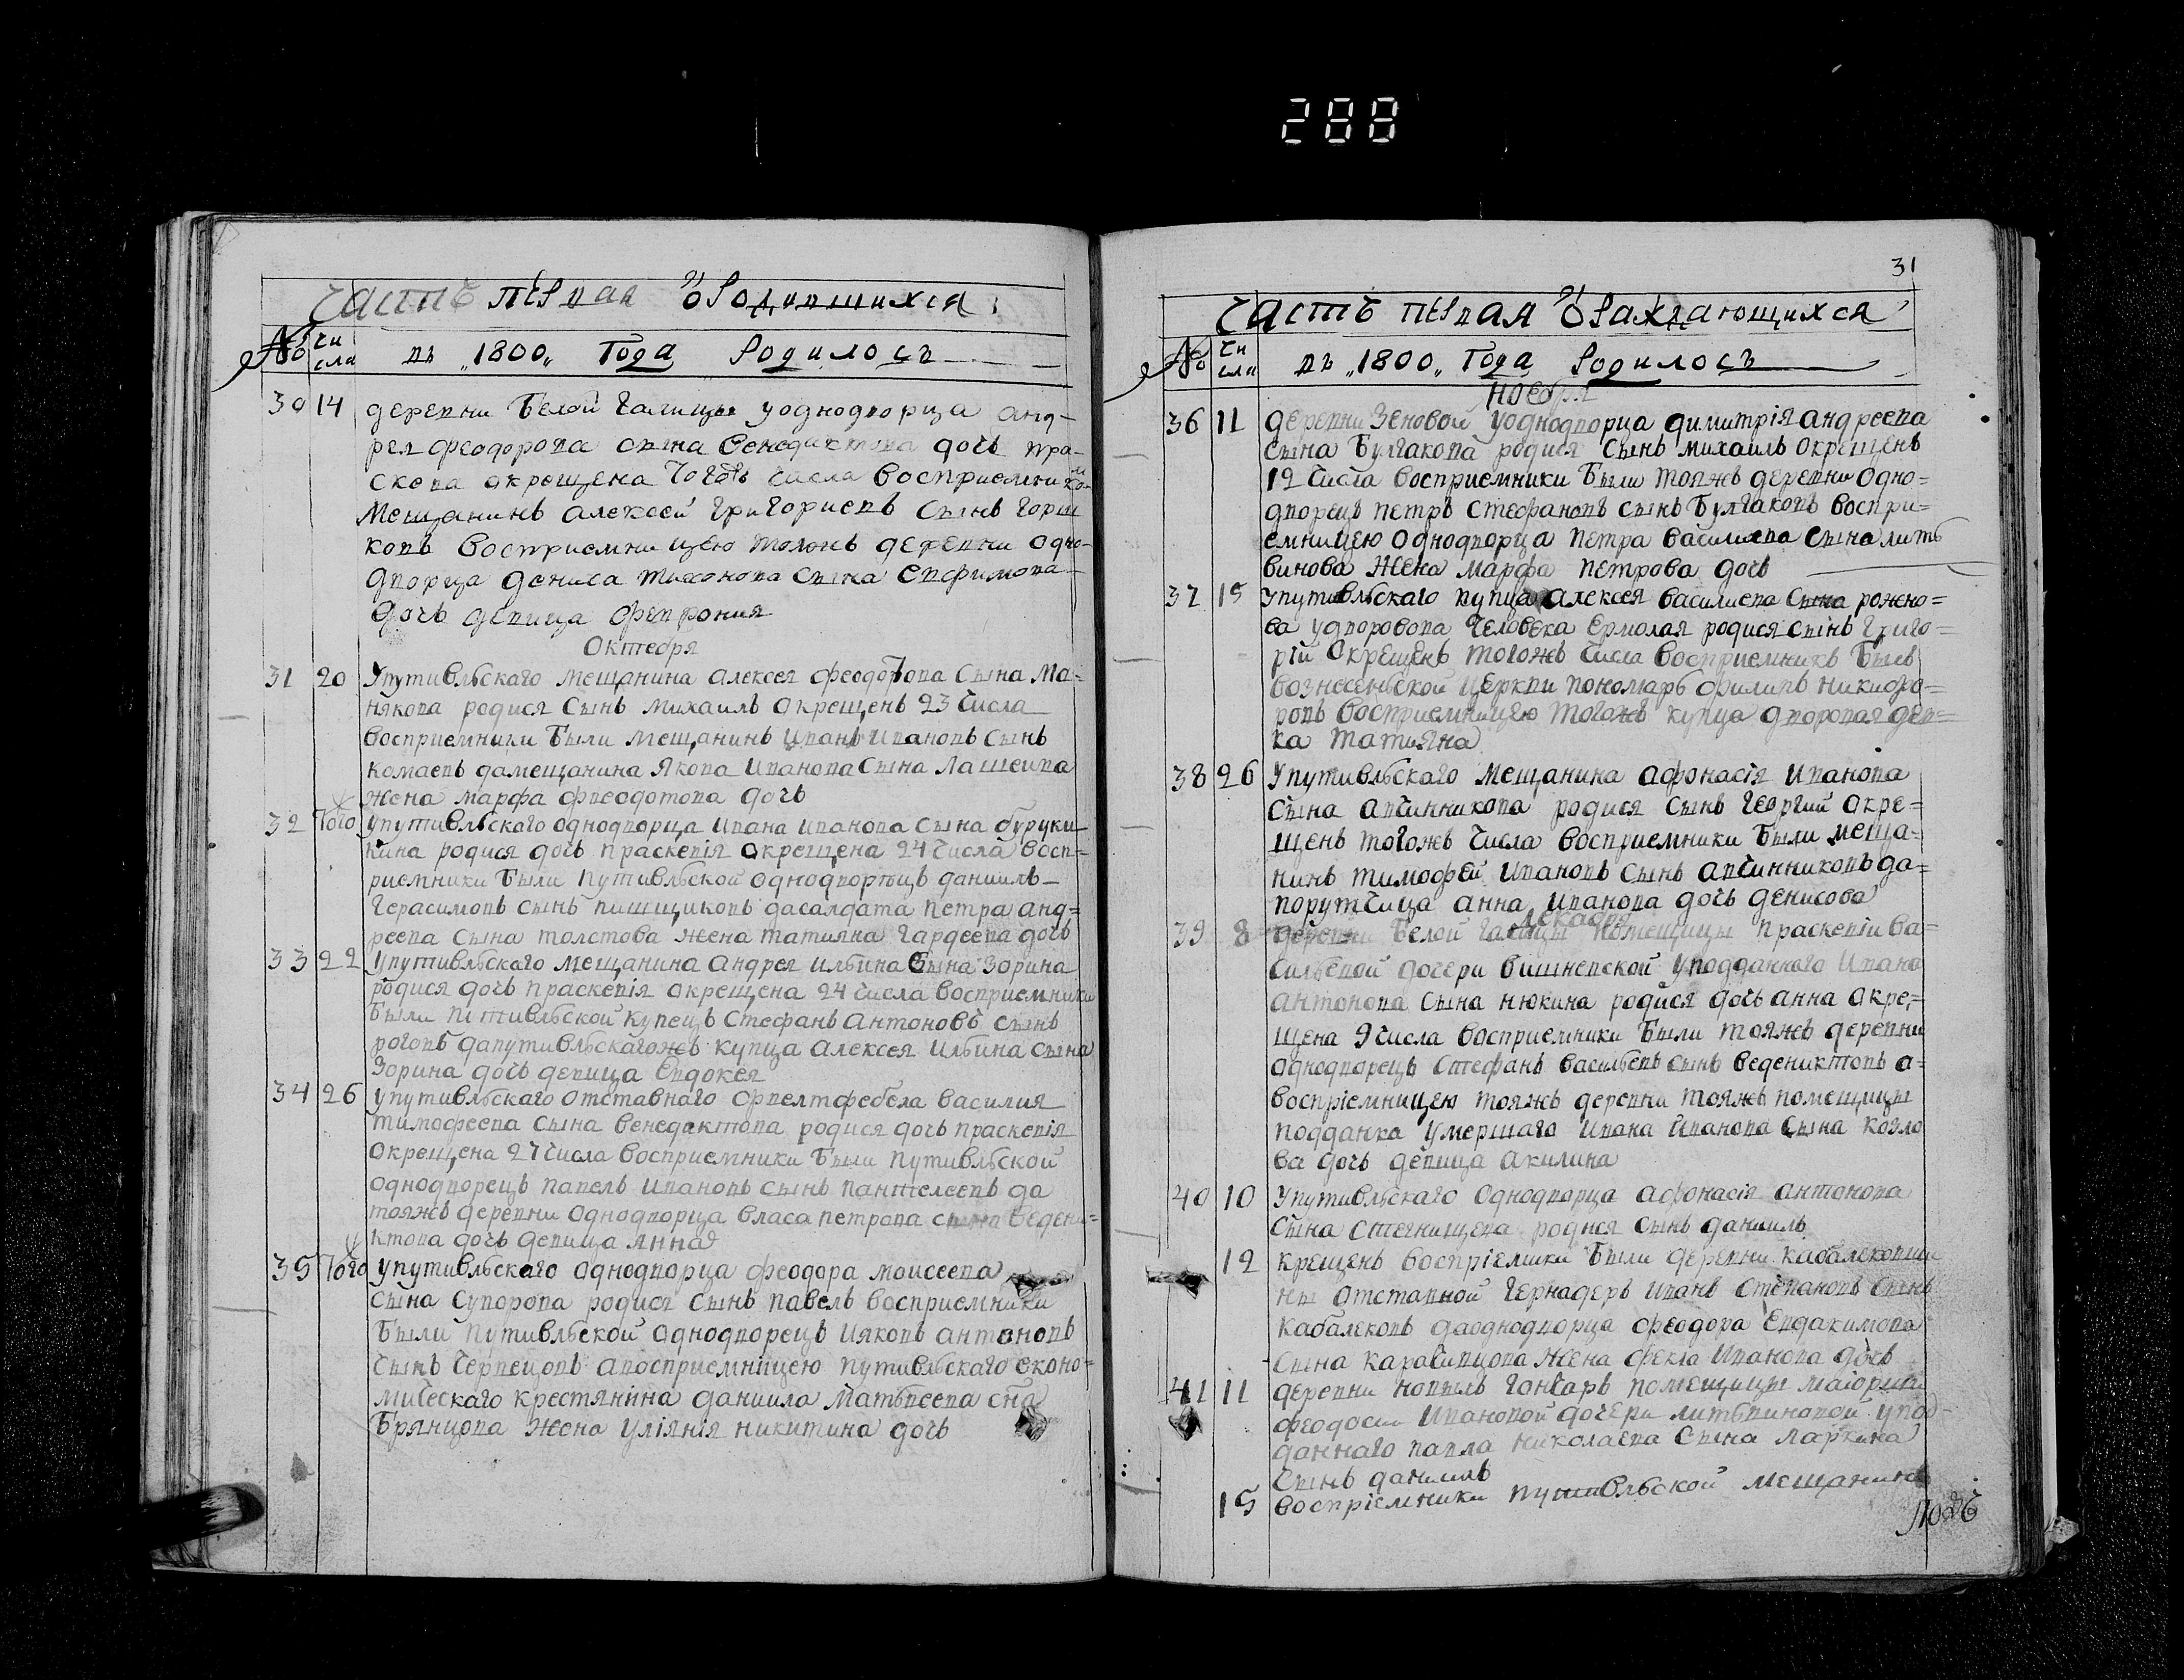 288
часть первая о родившихся
№ чи сла въ 1800 году родилось
30 14 деревни Белой Галицы уоднодворца анд-
рея феодорова сына Венедиктова дочь пра-
скева окрещена тогожъ числа восприемникомъ
мещанинъ алексей григориевъ сынъ горш
ковъ восприемницею тояжъ деревни одно-
дворца дениса тихонова сына евфимова
дочь девица феврония
октебря
31 20 упутивльскаго мещанина алексея феодорова сына Ма-
някова родися сынъ михаилъ окрещенъ 23 числа
восприемники были мещанинъ иванъ ивановъ сынъ
комаевъ дамещанина якова иванова сына Лашеива
жена марфа феодотова дочь
32 того упутивльскаго однодворца ивана иванова сына буруки
кина родися дочь праскевія окрещена 24 числа восп-
риемники были путивльской однодворецъ даниилъ
герасимовъ сынъ пищиковъ дасалдата петра анд-
реева сына толстова жена татияна гардеева дочь
33 22 упутивльскаго мещанина андрея ильина сына зорина
родися дочь праскевія окрещена 24 числа восприемники
были путивльской купецъ стефанъ антоновъ сынъ
роговъ дапутивльскагожъ купца алексея ильина сына
зорина дочь девица евдокея
34 26 упутивльскаго отставнаго фрелтфебела василия
тимофеева сына венедиктова родися дочь праскевія
окрещена 27 числа восприемники были путивльской
однодворецъ павелъ ивановъ сынъ пантелеевъ да
тояжъ деревни однодворца власа петрова сына ведени-
ктова дочь девица анна
35 того упутивльскаго однодворца феодора моисеева
сына суворова родися сынъ павелъ восприемники
были путивльской однодворецъ ияковъ антоновъ
сынъ черпецовъ авосприемницею путивльскаго еконо-
мическаго крестянина даниила матвпеева сна
брянцова жена уліянія никитина дочь
31
часть первая о раждающихся
№ чи сла въ 1800 года родилось
ноебря
36 11 деревни Зеновой уоднодворца димитрія андреева
сына Булгакова родися сынъ михаилъ окрещенъ
12 числа восприемники были тояжъ деревни одно-
дворецъ петръ стефановъ сынъ Булгаковъ воспри-
емницею однодворца петра василиева сына литъ
винова жена марфа петрова дочь
37 15 упутивльскаго купца алексея василиева сына рожно-
ва удворовова человека ермолая родися сынъ григо-
рій окрещенъ тогожъ числа восприемникъ былъ
вознесеньской церкви пономарь филипъ никифо-
ровъ восприемницею тогожъ купца дворовая дев-
ка татияна
38 26 упутивльскаго мещанина афонасія иванова
сына авчинникова родися сынъ георгий окре-
щенъ тогожъ числа восприемники были меща-
нинъ тимофей ивановъ сынъ авчинниковъ да-
порутчица анна иванова дочь денисова
декабря
39 8 деревни Белой галицы помещицы праскевіи ва-
сильевой дочери вишневской уподданного ивана
антонова сына нюкина родися дочь анна окре-
щена 9 числа восприемники были тояжъ деревни
однодворецъ стефанъ васильевъ сынъ ведениктовъ а-
воспріемницею тояжъ деревни тояжъ помещицы
подданка умершаго ивана иванова сына козло
ва дочь девица акилина
40 10 упутивльскаго однодворца афонасія антонова
сына стегнищева родися сынъ даниилъ
12 крещенъ воспріемники были деревни кабалековши
ны отставной гернадеръ иванъ степановъ сынъ
кабалековъ даоднодворца феодора евдакимова
сына карачивцова жена фекла иванова дочь
41 11 деревни новыхъ гончаръ помещицы маіорши
феодосии ивановой дочери литвпиновой упод-
даннаго павла николаева сына ларкина
сынъ даниилъ
15 воспріемники путивльской мещанинъ